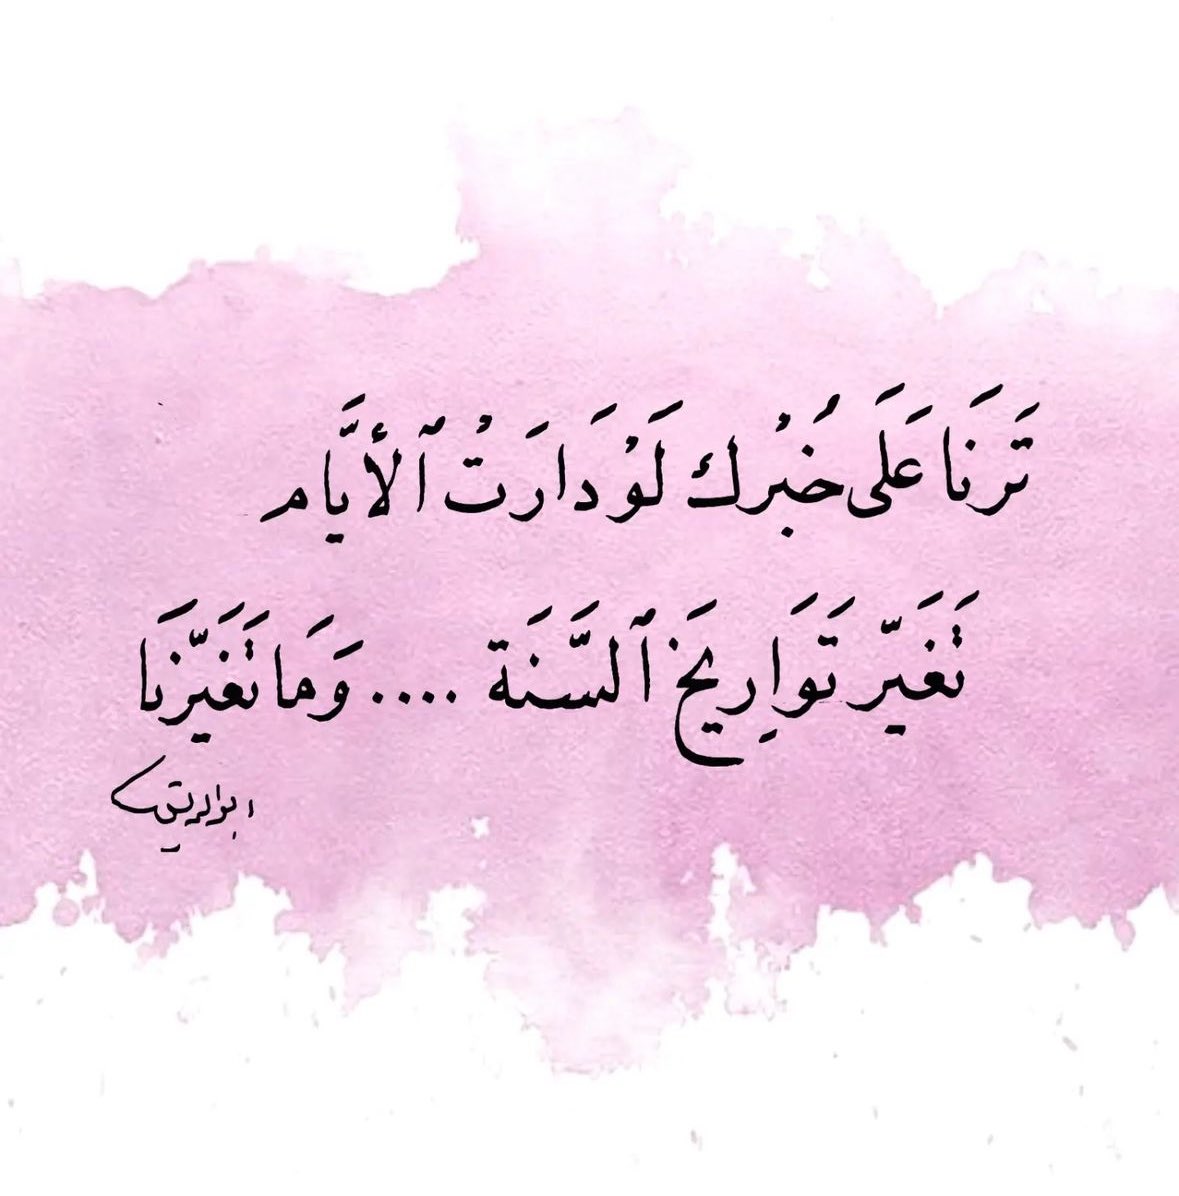 تَرنَا عَلَى خُبْرك لَوْ دَارَتْ ٱلأيَّام
تَغَيّر تَوَارِيخَ ٱلسَّنَة .... وَمَا تَغَيّرنَا